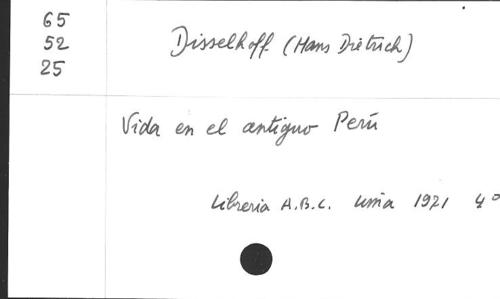 65
52
25
Disselhoff (Hans Dietrich)
Vida en el antiguo Perú
Libreria A.B.C. Lima 1971 4º